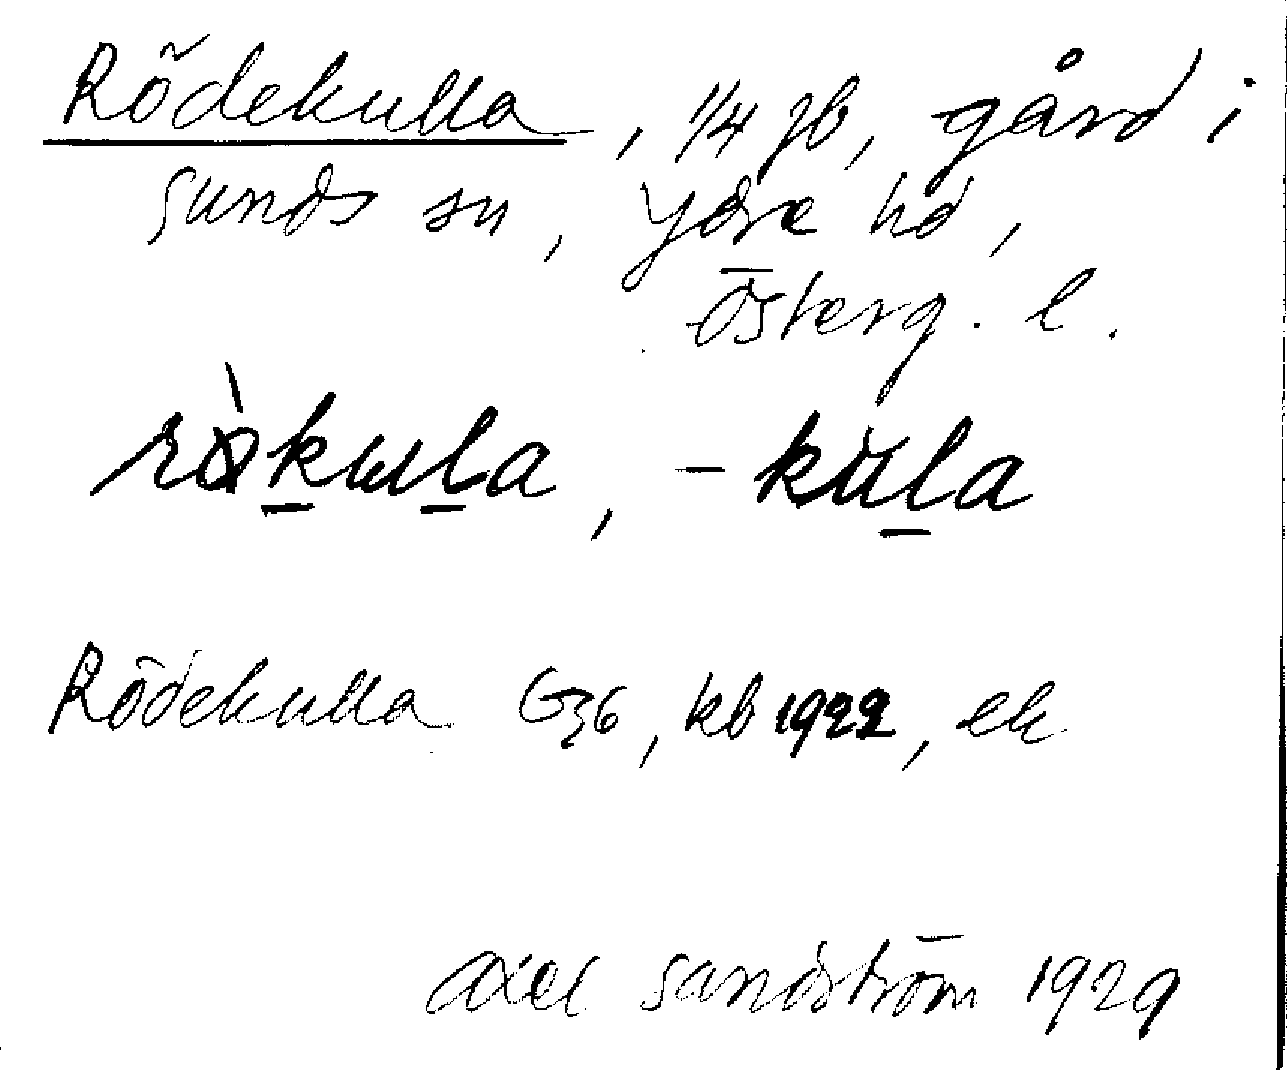 Rödekulla, 1/4 jb, gård i
Sunds sn, Ydre hd,
Österg. l.
rø̀kula, -kùla
Rödekulla G36, kb 1922, ek
Axel Sandström 1929